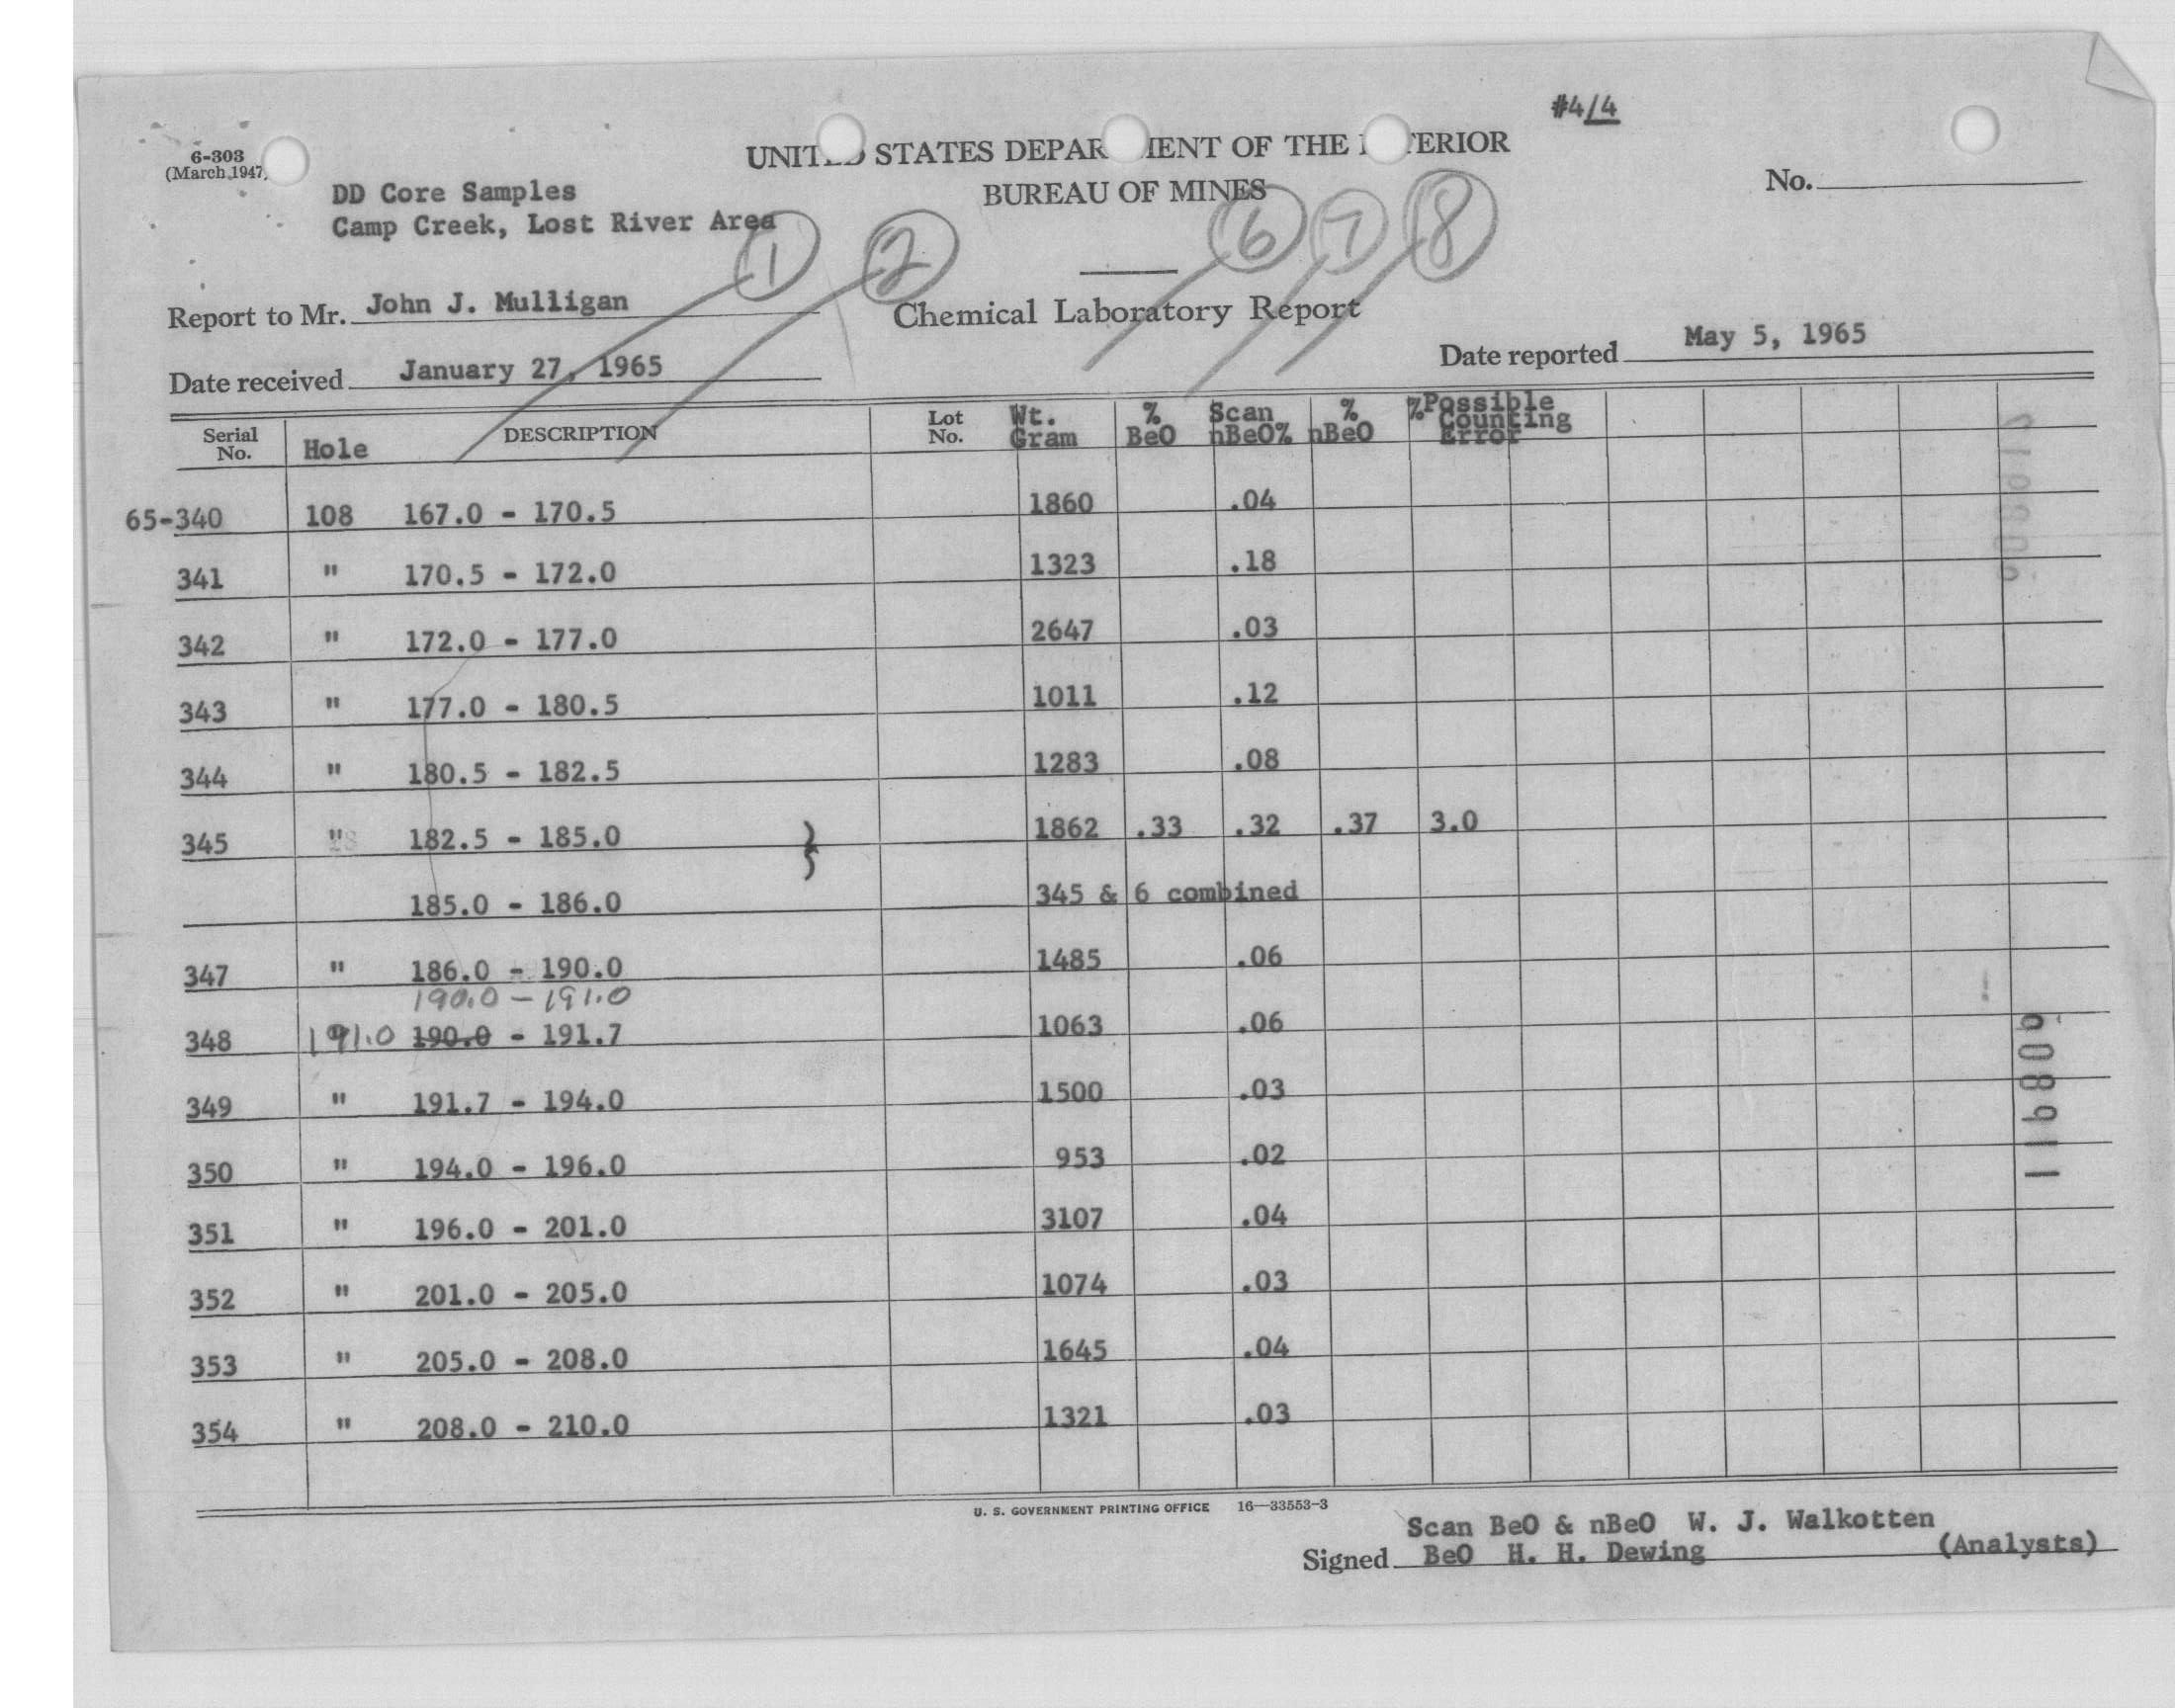 #4/4
6-303
(March 1947)
UNITED STATES DEPARTMENT OF THE INTERIOR
BUREAU OF MINES
No.
DD Core Samples
Camp Creek, Lost River Area
1 2 6 7 8
Report to Mr. John J. Mulligan
Chemical Laboratory Report
Date received January 27, 1965
Date reported May 5, 1965
Serial No. Hole DESCRIPTION Lot No. Wt. Gram % BeO Scan nBeO% % nBeO % Possible Counting Error
65-340 108 167.0 - 170.5 1860 .04
341 " 170.5 - 172.0 1323 .18
342 " 172.0 - 177.0 2647 .03
343 " 177.0 - 180.5 1011 .12
344 " 180.5 - 182.5 1283 .08
345 " 182.5 - 185.0 } 1862 .33 .32 .37 3.0
185.0 - 186.0 345 & 6 combined
347 " 186.0 - 190.0 1485 .06
190.0 - 191.0
348 191.0 190.0 - 191.7 1063 .06
349 " 191.7 - 194.0 1500 .03
350 " 194.0 - 196.0 953 .02
351 " 196.0 - 201.0 3107 .04
352 " 201.0 - 205.0 1074 .03
353 " 205.0 - 208.0 1645 .04
354 " 208.0 - 210.0 1321 .03
U. S. GOVERNMENT PRINTING OFFICE 16—33553-3
Scan BeO & nBeO W. J. Walkotten
Signed BeO H. H. Dewing (Analysts)